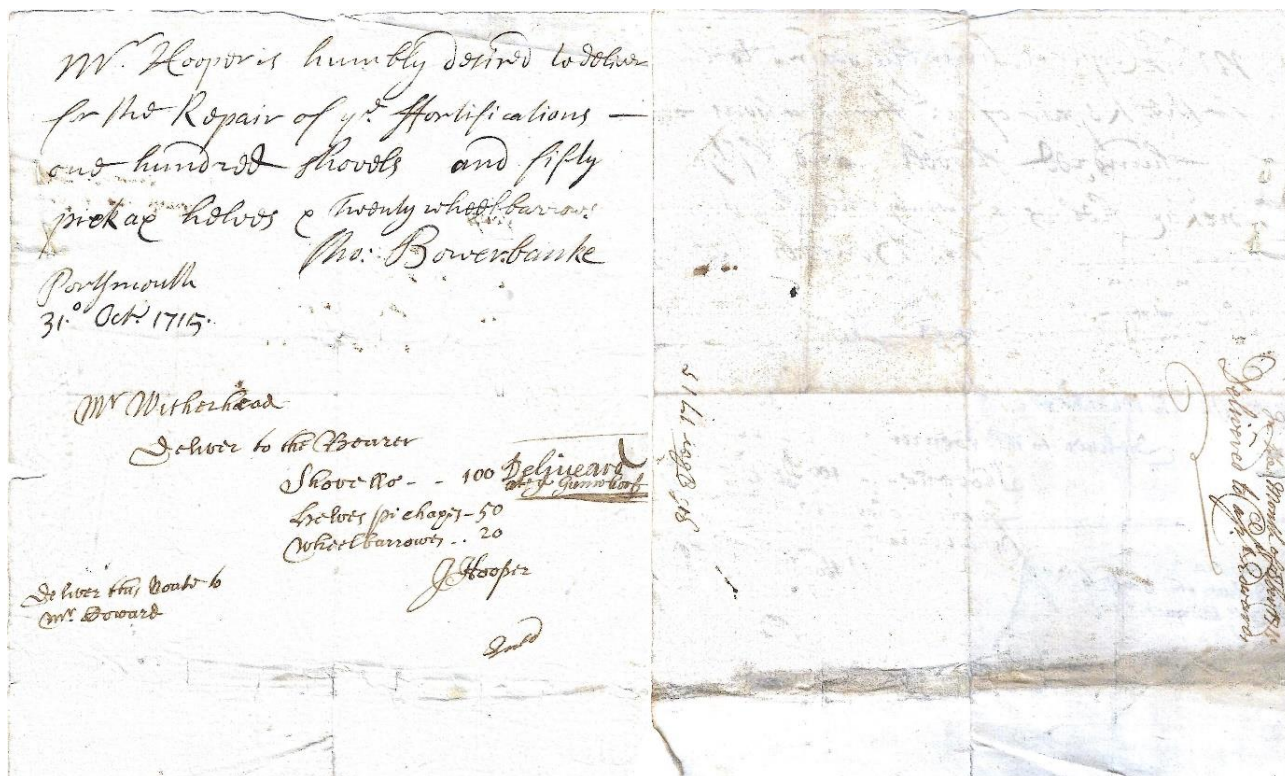 Mr. Hooper is humbly desired to deliver
for the Repair of ye. ffortifications —
one hundred shovels and fifty
pickax helves & Twenty wheelbarrows
Tho: Bowerbanke
Portsmouth
31.º Octr. 1715.
Mr Witherhead
Deliver to the Bearer
Shovells - - 100 Deliveard
att ye Gunwhorf
helves pickaxes - 50
wheelbarrowes .. 20
J Hooper
Deliver this Noate to
Mr. Doward
31 Octor 1715
Delivered by